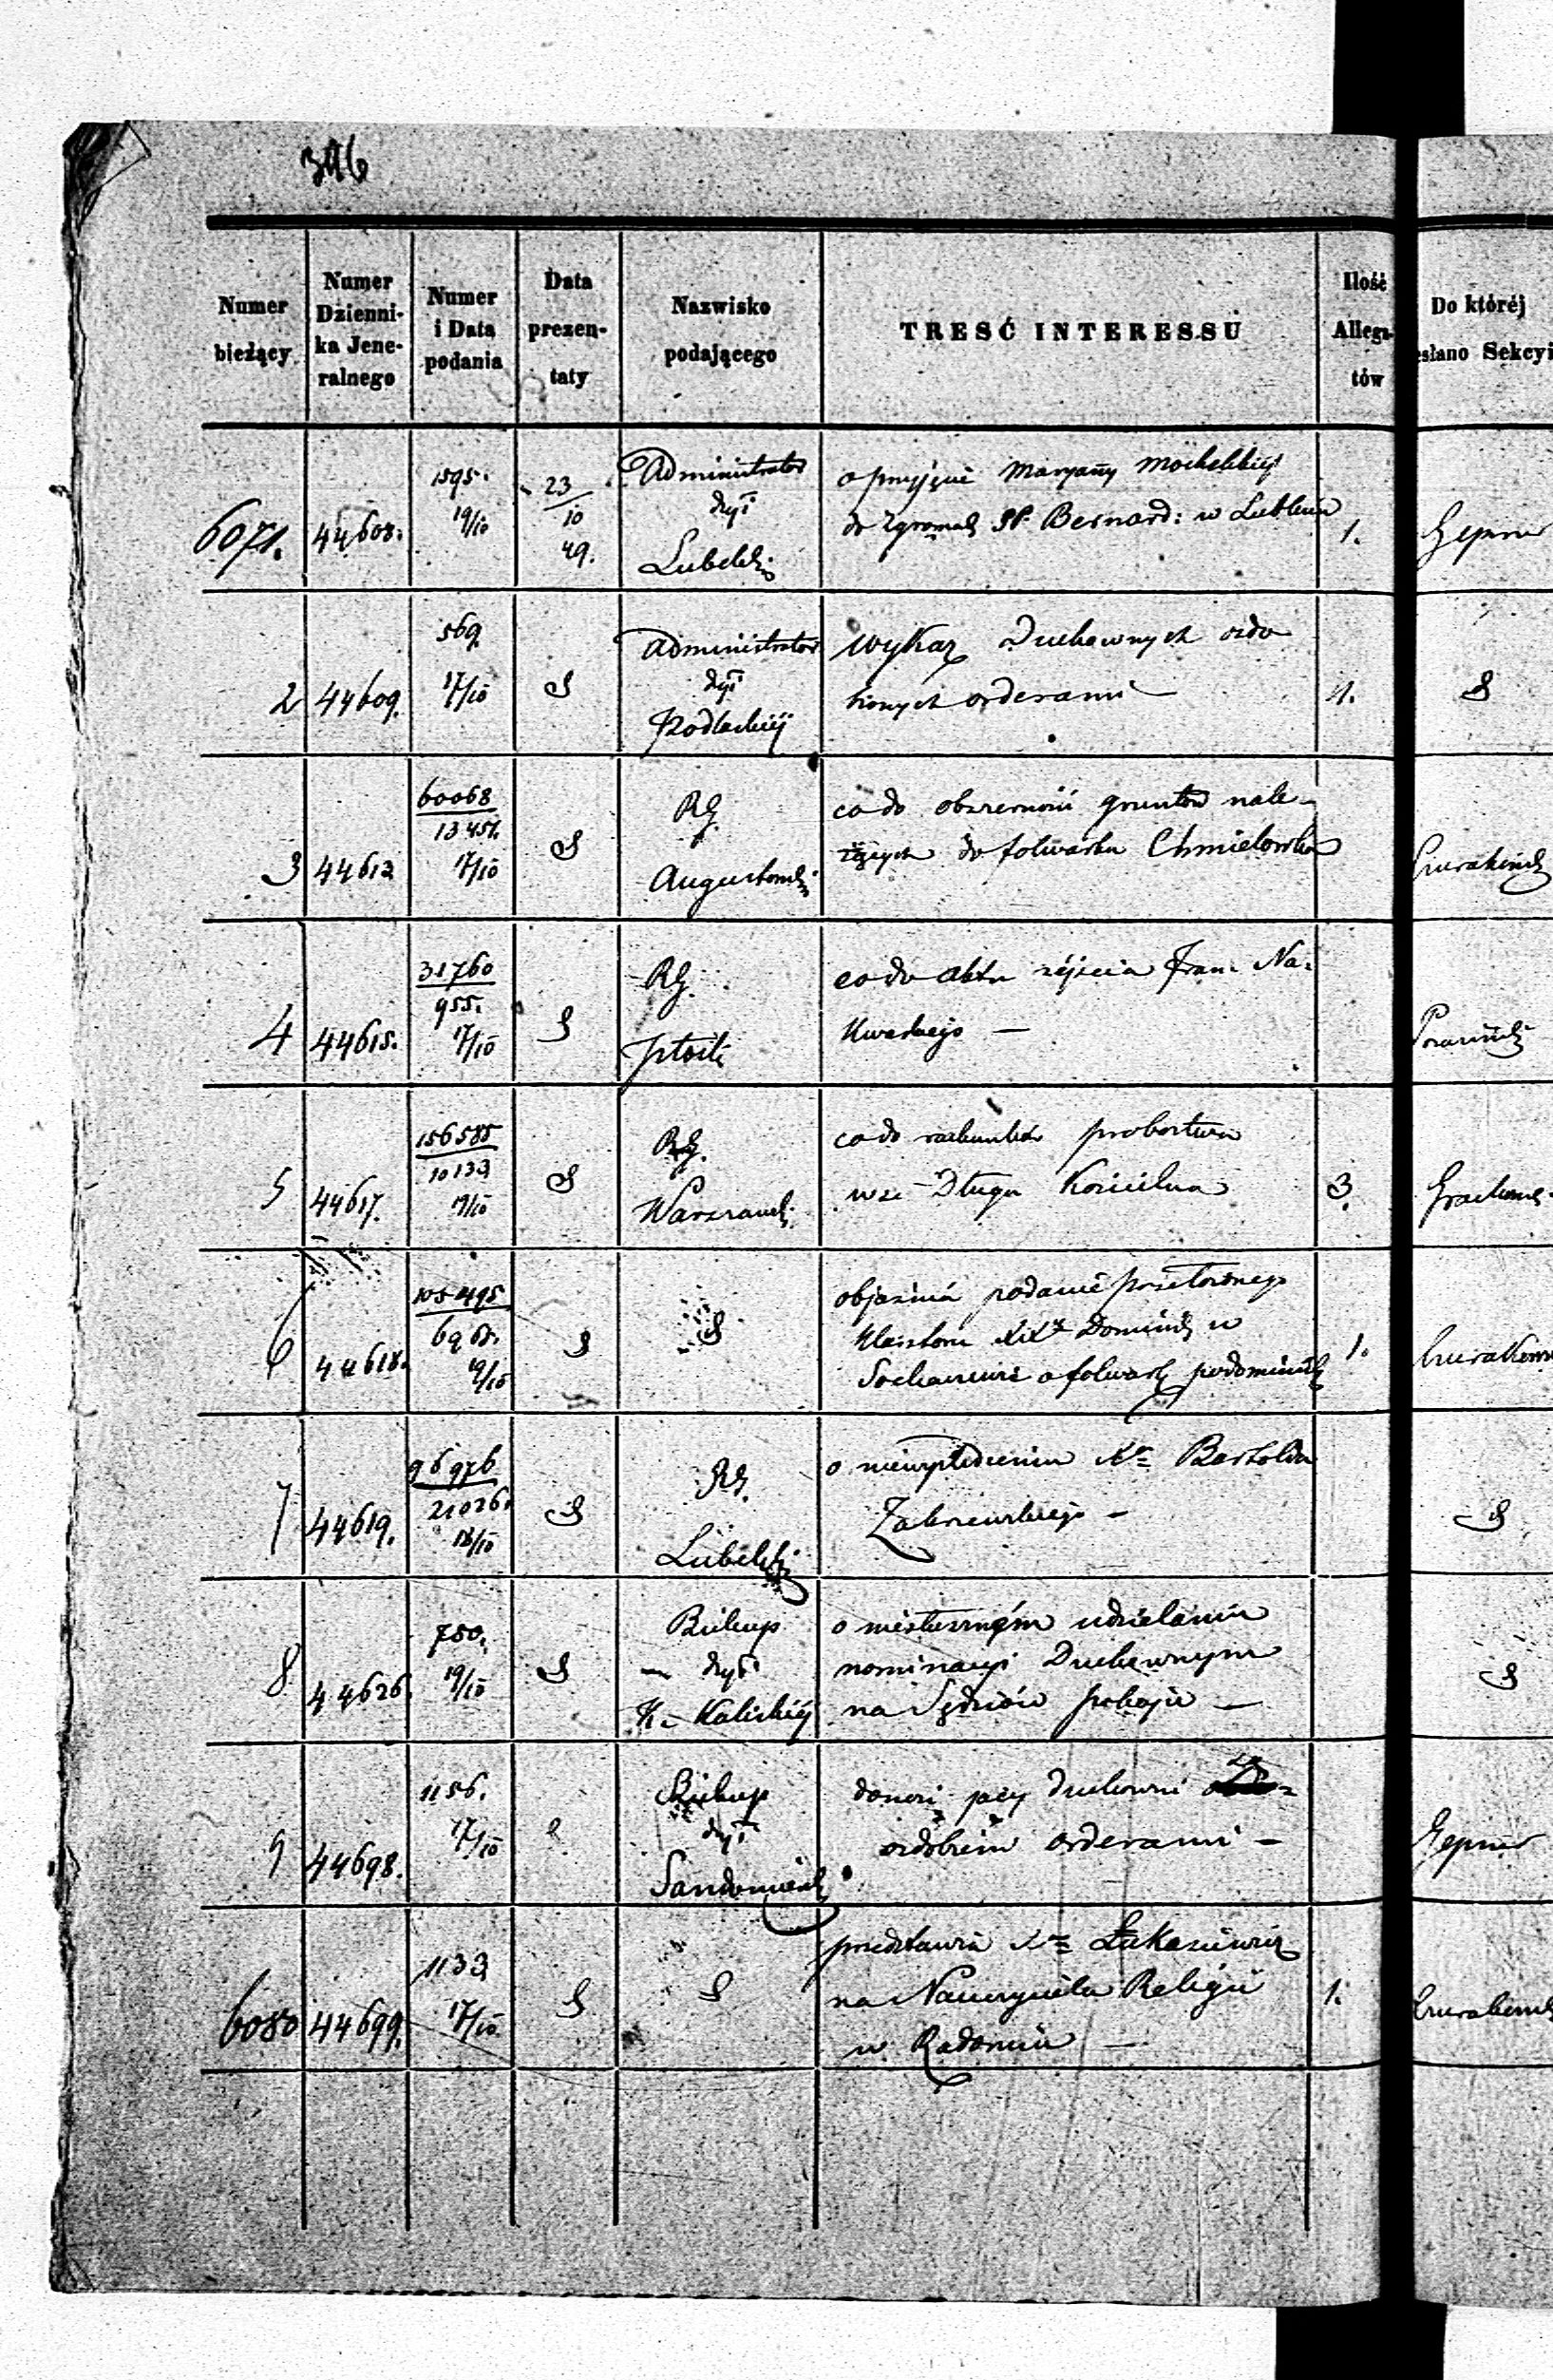 396
Numer bieżący
Numer Dzienni-ka Jene-ralnego
Numer i Data podania
Data prezen-taty
Nazwisko podającego
TRESĆ INTERESSU
Ilość Allega-tów
Do któréj
esłano Sekcyi
6071. 44608. 1595. 19/10 23/10 49. Administrator dyi Lubelski
o przyjęcie Maryanny
do Zgromadz PP. Bernard: w Lublinie 1. Hepner
2 44609. 569. 17/10 S Administrator dyi Podlaskiéj
wykaz Duchownych ozdo
bionych orderami — 1. S
3 44612 60068/13451. 17/10 S RG. Augustowski
co do obszerności gruntów nale-
żących do folwarku Chmielówka
4 44615. 31760/955. 17/10 S RG. Płocki
co do aktu zéjscia Fran: Na-
kwaskiego —
5 44617. 156585/10133 19/10 S RG. Warszawski
co do rachunków probostwa
wsi Długa Kościelna 3.
6 44618. 105495/6968. 19/10 S S
objaśnia podanie Przełożonego
Klasztoru XX. Dominik w
Sochaczewie o folwark podominik 1.
7 44619. 96976/21026. 18/10 S RG. Lubelski
o Xa Bartolda
Zakrzewskiego — S
8 44626. 750. 19/10 S Biskup dyi K. Kaliskiéj
o niesłuszném udzielaniu
nominacyi Duchownym
na Sędziów pokoju — S
9 44698. 1156. 17/10 Biskup dyi Sandomiersk
donosi jacy duchowni
ozdobieni orderami — Hepner
6080 44699. 1133 17/10 S S
przedstawia Xa Łukasiewicz
na Nauczyciela Religii
w Radomiu — 1.